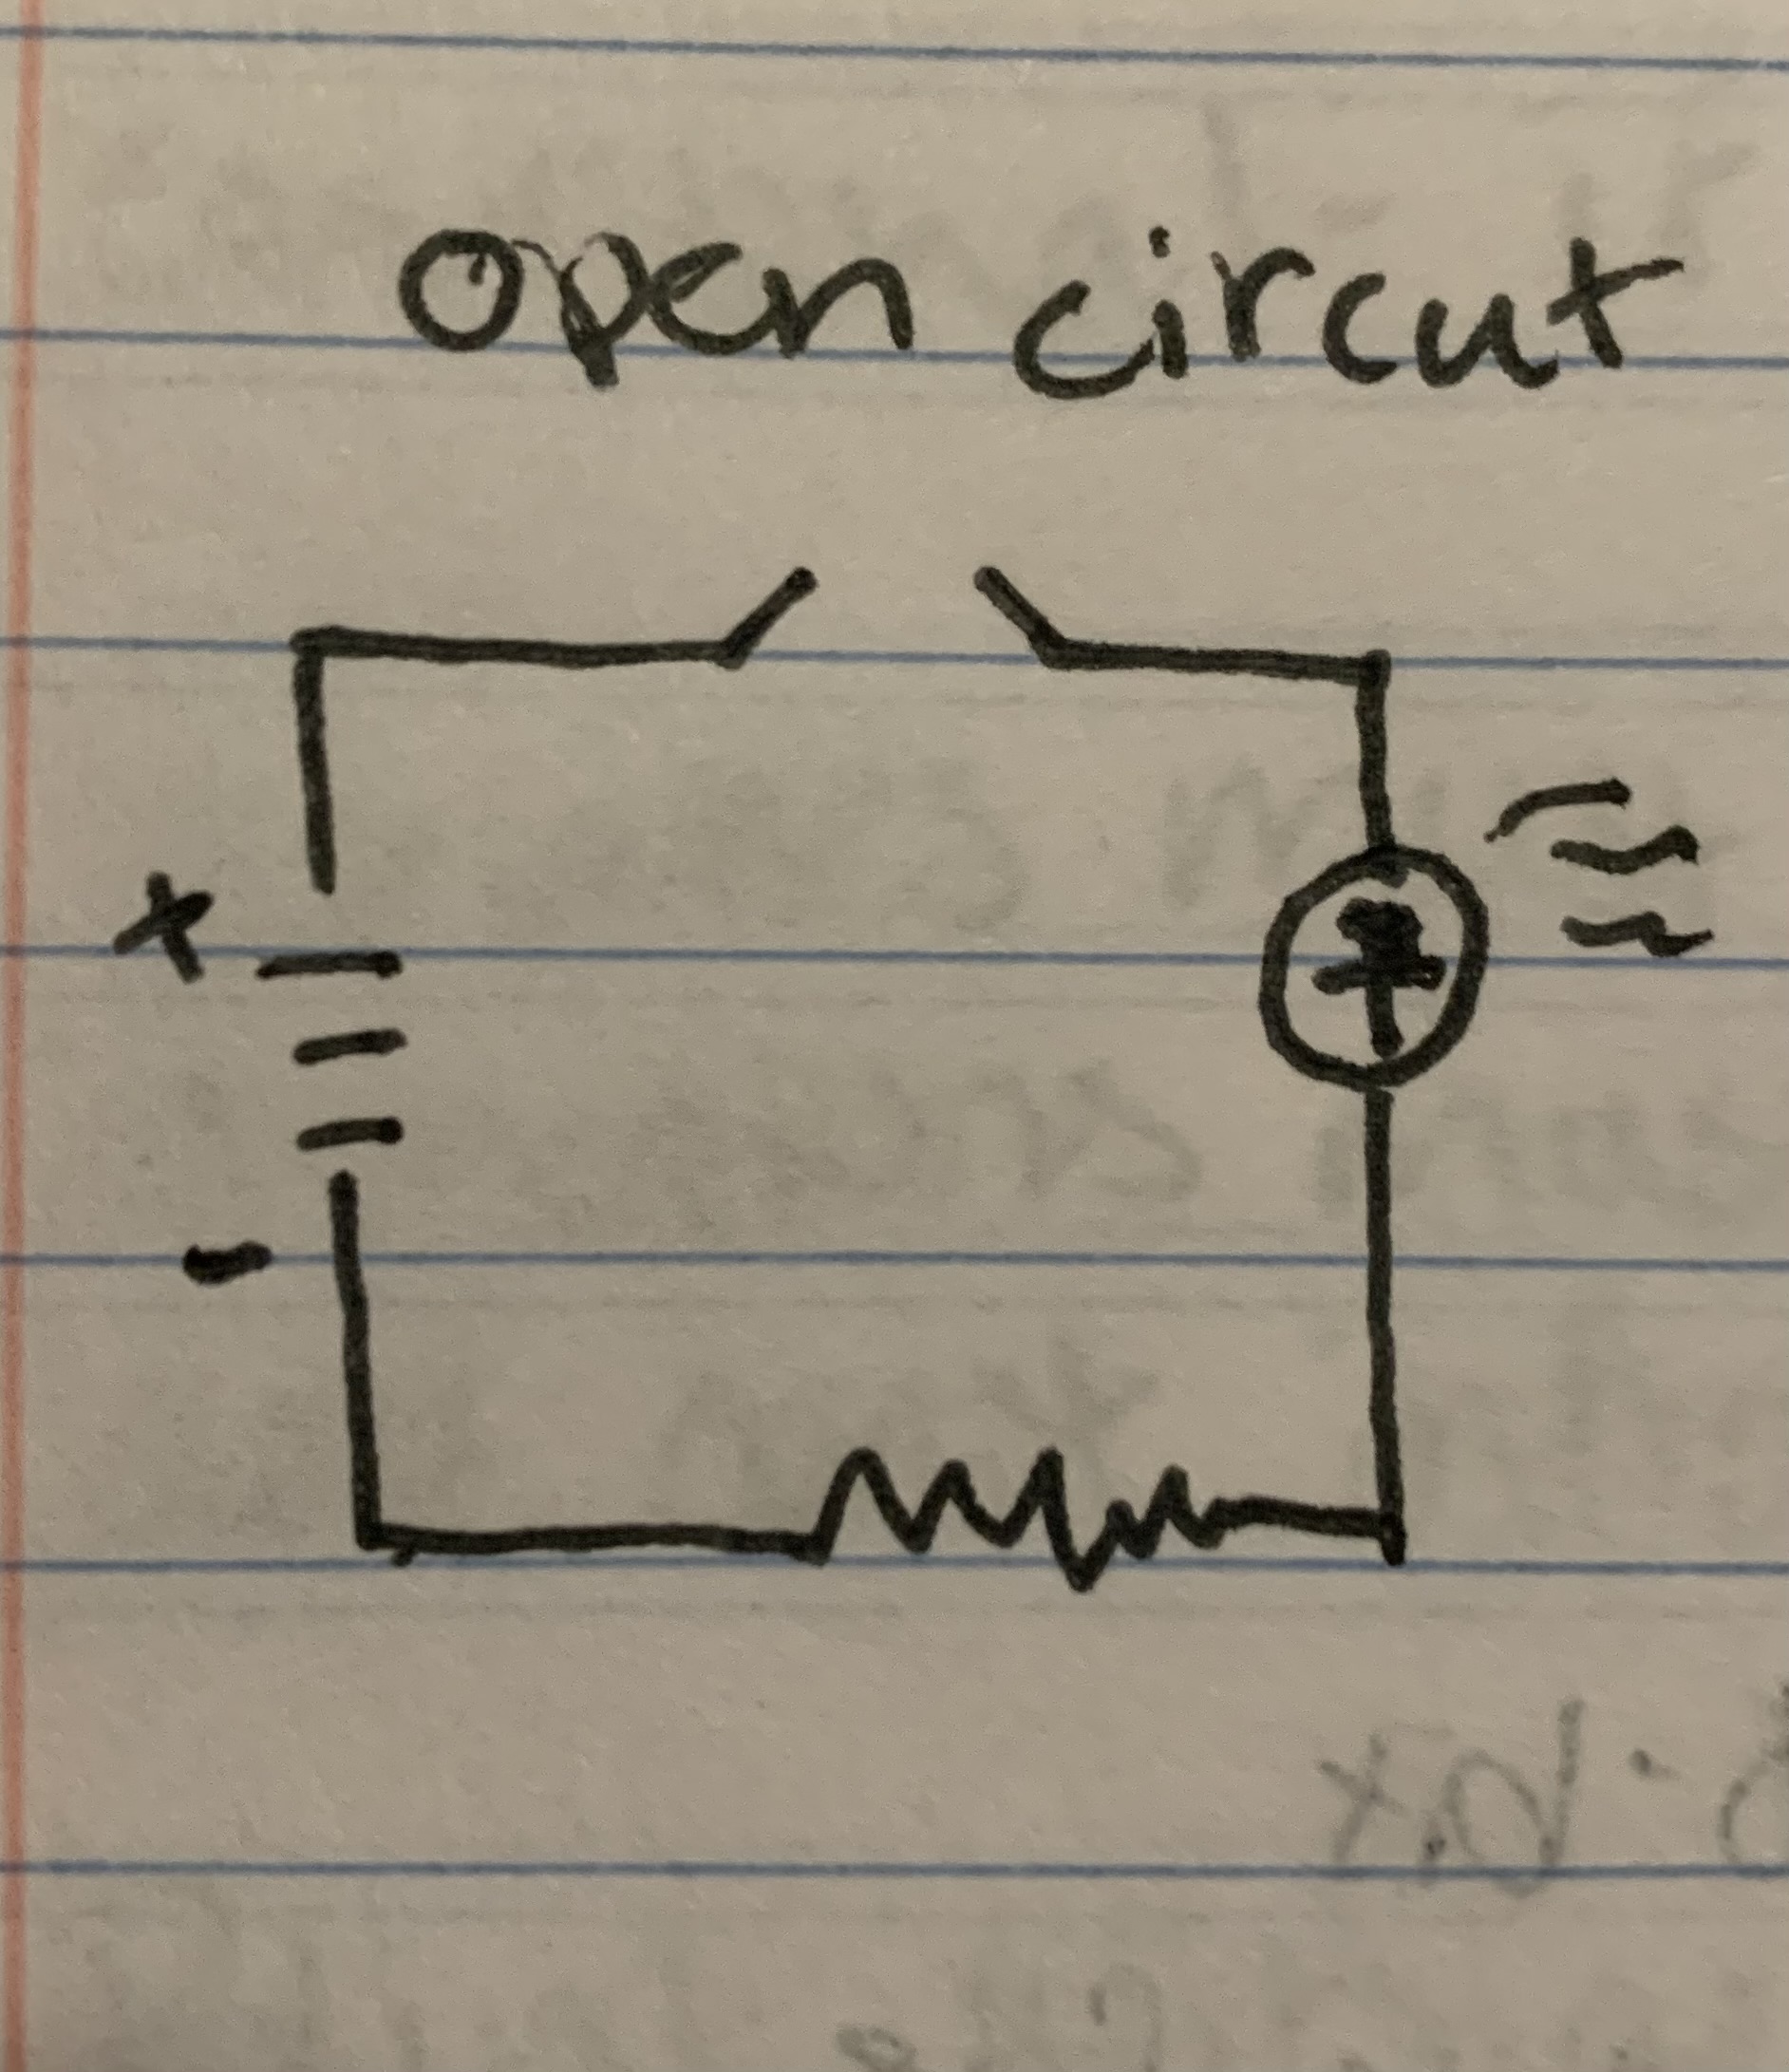 open circut
+
-